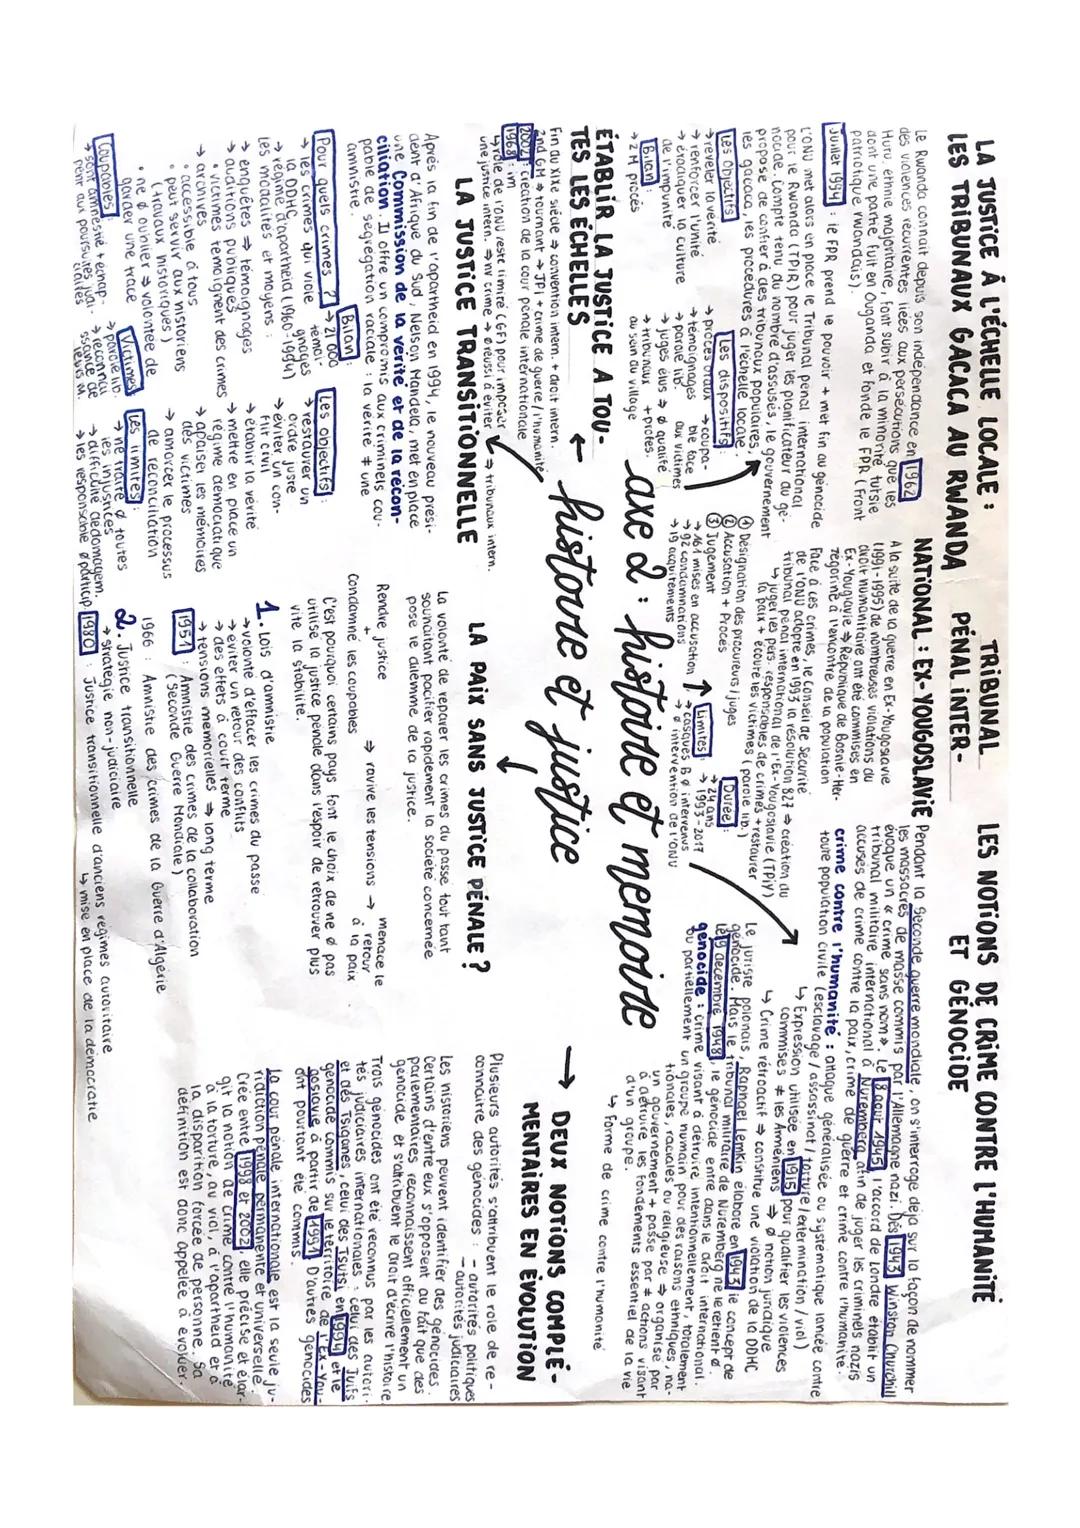 LA JUSTICE À L'ÉCHELLE LOCALE :
LES TRIBUNAUX GACACA AU RWANDA
Le Rwanda connait depuis son indépendance en 1962
des violences récurrentes liées aux persécutions que les
Hutu, ethnie majoritaire, font subir à la minorité tutsie
dont une partie fuit en Ouganda et fonde le FPR (Front
patriotique rwandais).
Juillet 1994 : le FPR prend le pouvoir + met fin au génocide
L'ONU met alors un place le Tribunal pénal international
pour le Rwanda (TPIR) pour juger les planificateur du gé-
nocide. Compte tenu du nombre d'assusés, le gouvernement
propose de confier à des tribunaux populaires,
les gacaca, les procédures à l'échelle locale.
Les Objectifs
→ reveler la vérité
→ renforcer l'unité
→ éradiquer la culture
de l'impunité
Bilan :
→ 2 M procès
Les dispositifs :
→ procès oraux
→ témoignages
→ parole lib.
→ juges élus ⇒ ø qualifié
→ tribunaux + proches.
au sein du village
→ coupa-
ble face
aux victimes
TRIBUNAL
PÉNAL INTER-
NATIONAL : EX-YOUGOSLAVIE
A la suite de la guerre en Ex-Yougoslavie
(1991-1995) de nombreuses violations du
droit humanitaire ont été commises en
Ex-Youglavie ⇒ République de Bosnie-Her-
zégorine à l'encontre de la population
Face à ces crimes, le Conseil de Sécurité
de l'ONU adopte en 1993 la résolution 827 ⇒ création du
tribunal pénal international de l'Ex-Yougoslavie (TPIY)
↳ juger les pers. responsables de crimes + restaurer
la paix + écoute les victimes (parole lib.)
① Désignation des procureurs / juges
② Accusation + Procès
③ Jugement
→ 161 mises en accusation
→ 92 condamnations
→ 19 acquittements
Durée :
→ 24 ans
→ 1993-2017
Limites :
→ casques B ø intervenus
→ ø intervention de l'ONU
LES NOTIONS DE CRIME CONTRE L'HUMANITÉ
ET GÉNOCIDE
Pendant la Seconde guerre mondiale, on s'interroge déjà sur la façon de nommer
les massacres de masse commis par l'Allemagne nazi. Dès 1943, Winston Churchill
évoque un « crime sans nom ». Le 8 août 1945, l'accord de Londre établit un
tribunal militaire international à Nuremberg afin de juger les criminels nazis
accusés de crime contre la paix, crime de guerre et crime contre l'humanité.
crime contre l'humanité : attaque généralisée ou systématique lancée contre
toute population civile (esclavage / assassinat / torture / extermination / viol)
↳ Expression utilisée en 1915 pour qualifier les violences
commises ≠ les Arméniens ⇒ ø notion juridique
↳ Crime rétroactif ⇒ constitue une violation de la DDHC
Le juriste polonais, Raphael Lemkin élabore en 1943 le concept de
génocide. Mais le tribunal militaire de Nuremberg ne le retient ø.
Le 9 décembre 1948, le génocide entre dans le droit international.
génocide : crime visant à détruire, intentionnellement, totalement
ou partiellement un groupe humain pour des raisons ethniques, na-
tionales, raciales ou religieuse ⇒ organisé par
un gouvernement + passe par ≠ actions visant
à détruire les fondements essentiel de la vie
d'un groupe.
↳ Forme de crime contre l'humanité
axe 2 : histoire et memoire
histoire et justice
ÉTABLIR LA JUSTICE A TOU-
TES LES ÉCHELLES
Fin du XIXe siècle ⇒ convention intern. + droit intern.
2nd GM ⇒ tournant → JPI + crime de guerre / humanité
2002 : création de la cour pénale internationale
1968 : im
↳ rôle de l'ONU reste limité (GF) pour imposer
une justice intern. ⇒ nr crime → ø réussi à éviter
⇒ tribunaux intern.
LA JUSTICE TRANSITIONNELLE
Après la fin de l'apartheid en 1994, le nouveau prési-
dent d'Afrique du Sud, Nelson Mandela, met en place
une Commission de la verité et de la récon-
ciliation. Il offre un compromis aux criminels cou-
pable de ségrégation raciale : la vérité ≠ une
amnistie.
Pour quels crimes ?
→ les crimes qui viole
la DDHC,
→ régime d'apartheid (1960-1994)
Les modalités et moyens :
→ enquêtes ⇒ témoignages
→ auditions publiques
• victimes témoignent des crimes
→ archives
• accessible à tous
• peut servir aux historiens
(+ travaux historiques)
• ne ø oublier ⇒ volontée de
garder une trace
Bilan :
→ 21 000
témoi-
gnages
Les objectifs :
→ restaurer un
ordre juste
→ éviter un con-
flit civil
→ établir la vérité
→ mettre en place un
régime démocratique
→ apaiser les mémoires
des victimes
→ amorcer le processus
de réconciliation
Coupables :
→ sont amnéstié + échap-
pent aux poursuites judi-
ciaires
Victimes :
→ parole lib.
→ reconnai
ssance de
leurs M.
Les limites :
→ ne traite ø toutes
les injustices
→ difficulté dedomagem.
→ les responsable ø particip
LA PAIX SANS JUSTICE PÉNALE ?
La volonté de réparer les crimes du passé tout tant
souhaitant pacifier rapidement la société concernée
pose le dilemme de la justice.
Rendre justice
+
Condamné les coupables
⇒ ravive les tensions →
menace le
retour
à la paix
C'est pourquoi certains pays font le choix de ne ø pas
utilisé la justice pénale dans l'espoir de retrouver plus
vite la stabilité.
1. Lois d'amnistie
→ volonté d'effacer les crimes du passe
→ éviter un retour des conflits
→ des effets à court terme
→ tensions mémorielles ⇒ long terme
1951 : Amnistie des crimes de la collaboration
(Seconde Guerre Mondiale)
1966 : Amnistie des crimes de la Guerre d'Algérie
2. Justice transitionnelle
→ stratégie non-judiciaire
1980 : Justice transitionnelle d'anciens regimes autoritaire
↳ mise en place de la démocratie
→ DEUX NOTIONS COMPLÉ-
MENTAIRES EN ÉVOLUTION
Plusieurs autorités s'attribuent le rôle de re-
connaitre des génocides : - autorités politiques
- autorités judicaires
Les historiens peuvent identifier des génocides.
Certains d'entre eux s'opposent au fait que des
parlementaires reconnaissent officiellement un
génocide et s'attribuent le droit d'écrire l'histoire.
Trois génocides ont été reconnus par les autori-
tés judiciaires internationales : celui des Juifs
et des Tsiganes, celui des Tsutsi en 1994 et le
génocide commis sur le territoire de l'Ex-You-
goslavie à partir de 1991. D'autres génocides
ont pourtant été commis.
La cour pénale internationale est la seule ju-
ridiction pénale permanente et universelle.
Crée entre 1998 et 2002, elle précise et élar-
git la notion de crime contre l'humanité
à la torture, au viol, à l'apartheid et à
la disparition forcée de personne. Sa
définition est donc appelée à évoluer.